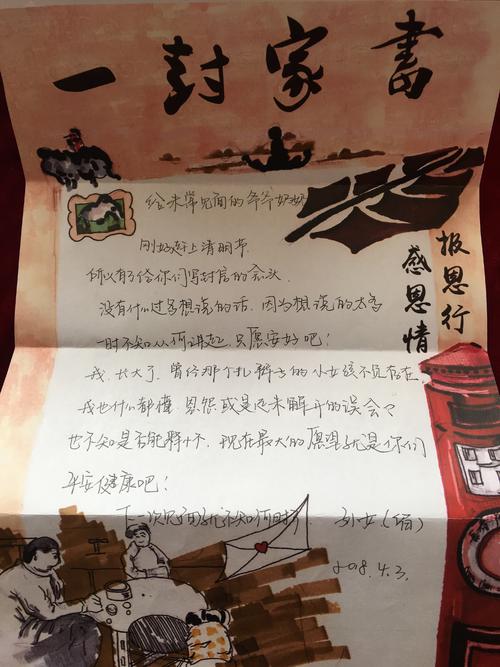 一封家書
报恩行
感恩情
给未常见面的爷爷奶奶
刚好赶上清明节
所以有了给你们写封信的念头
没有什么过多想说的话，因为想说的太多
一时不知从何讲起，只愿安好吧！
我，长大了，曾经那个扎辫子的小女孩不见存在，
我也什么都懂，恩怨或是还未解开的误会
也不知是否能释怀，现在最大的愿望就是你们
平安健康吧！
下一次见面就不知何时了 孙女（
2018.4.3.